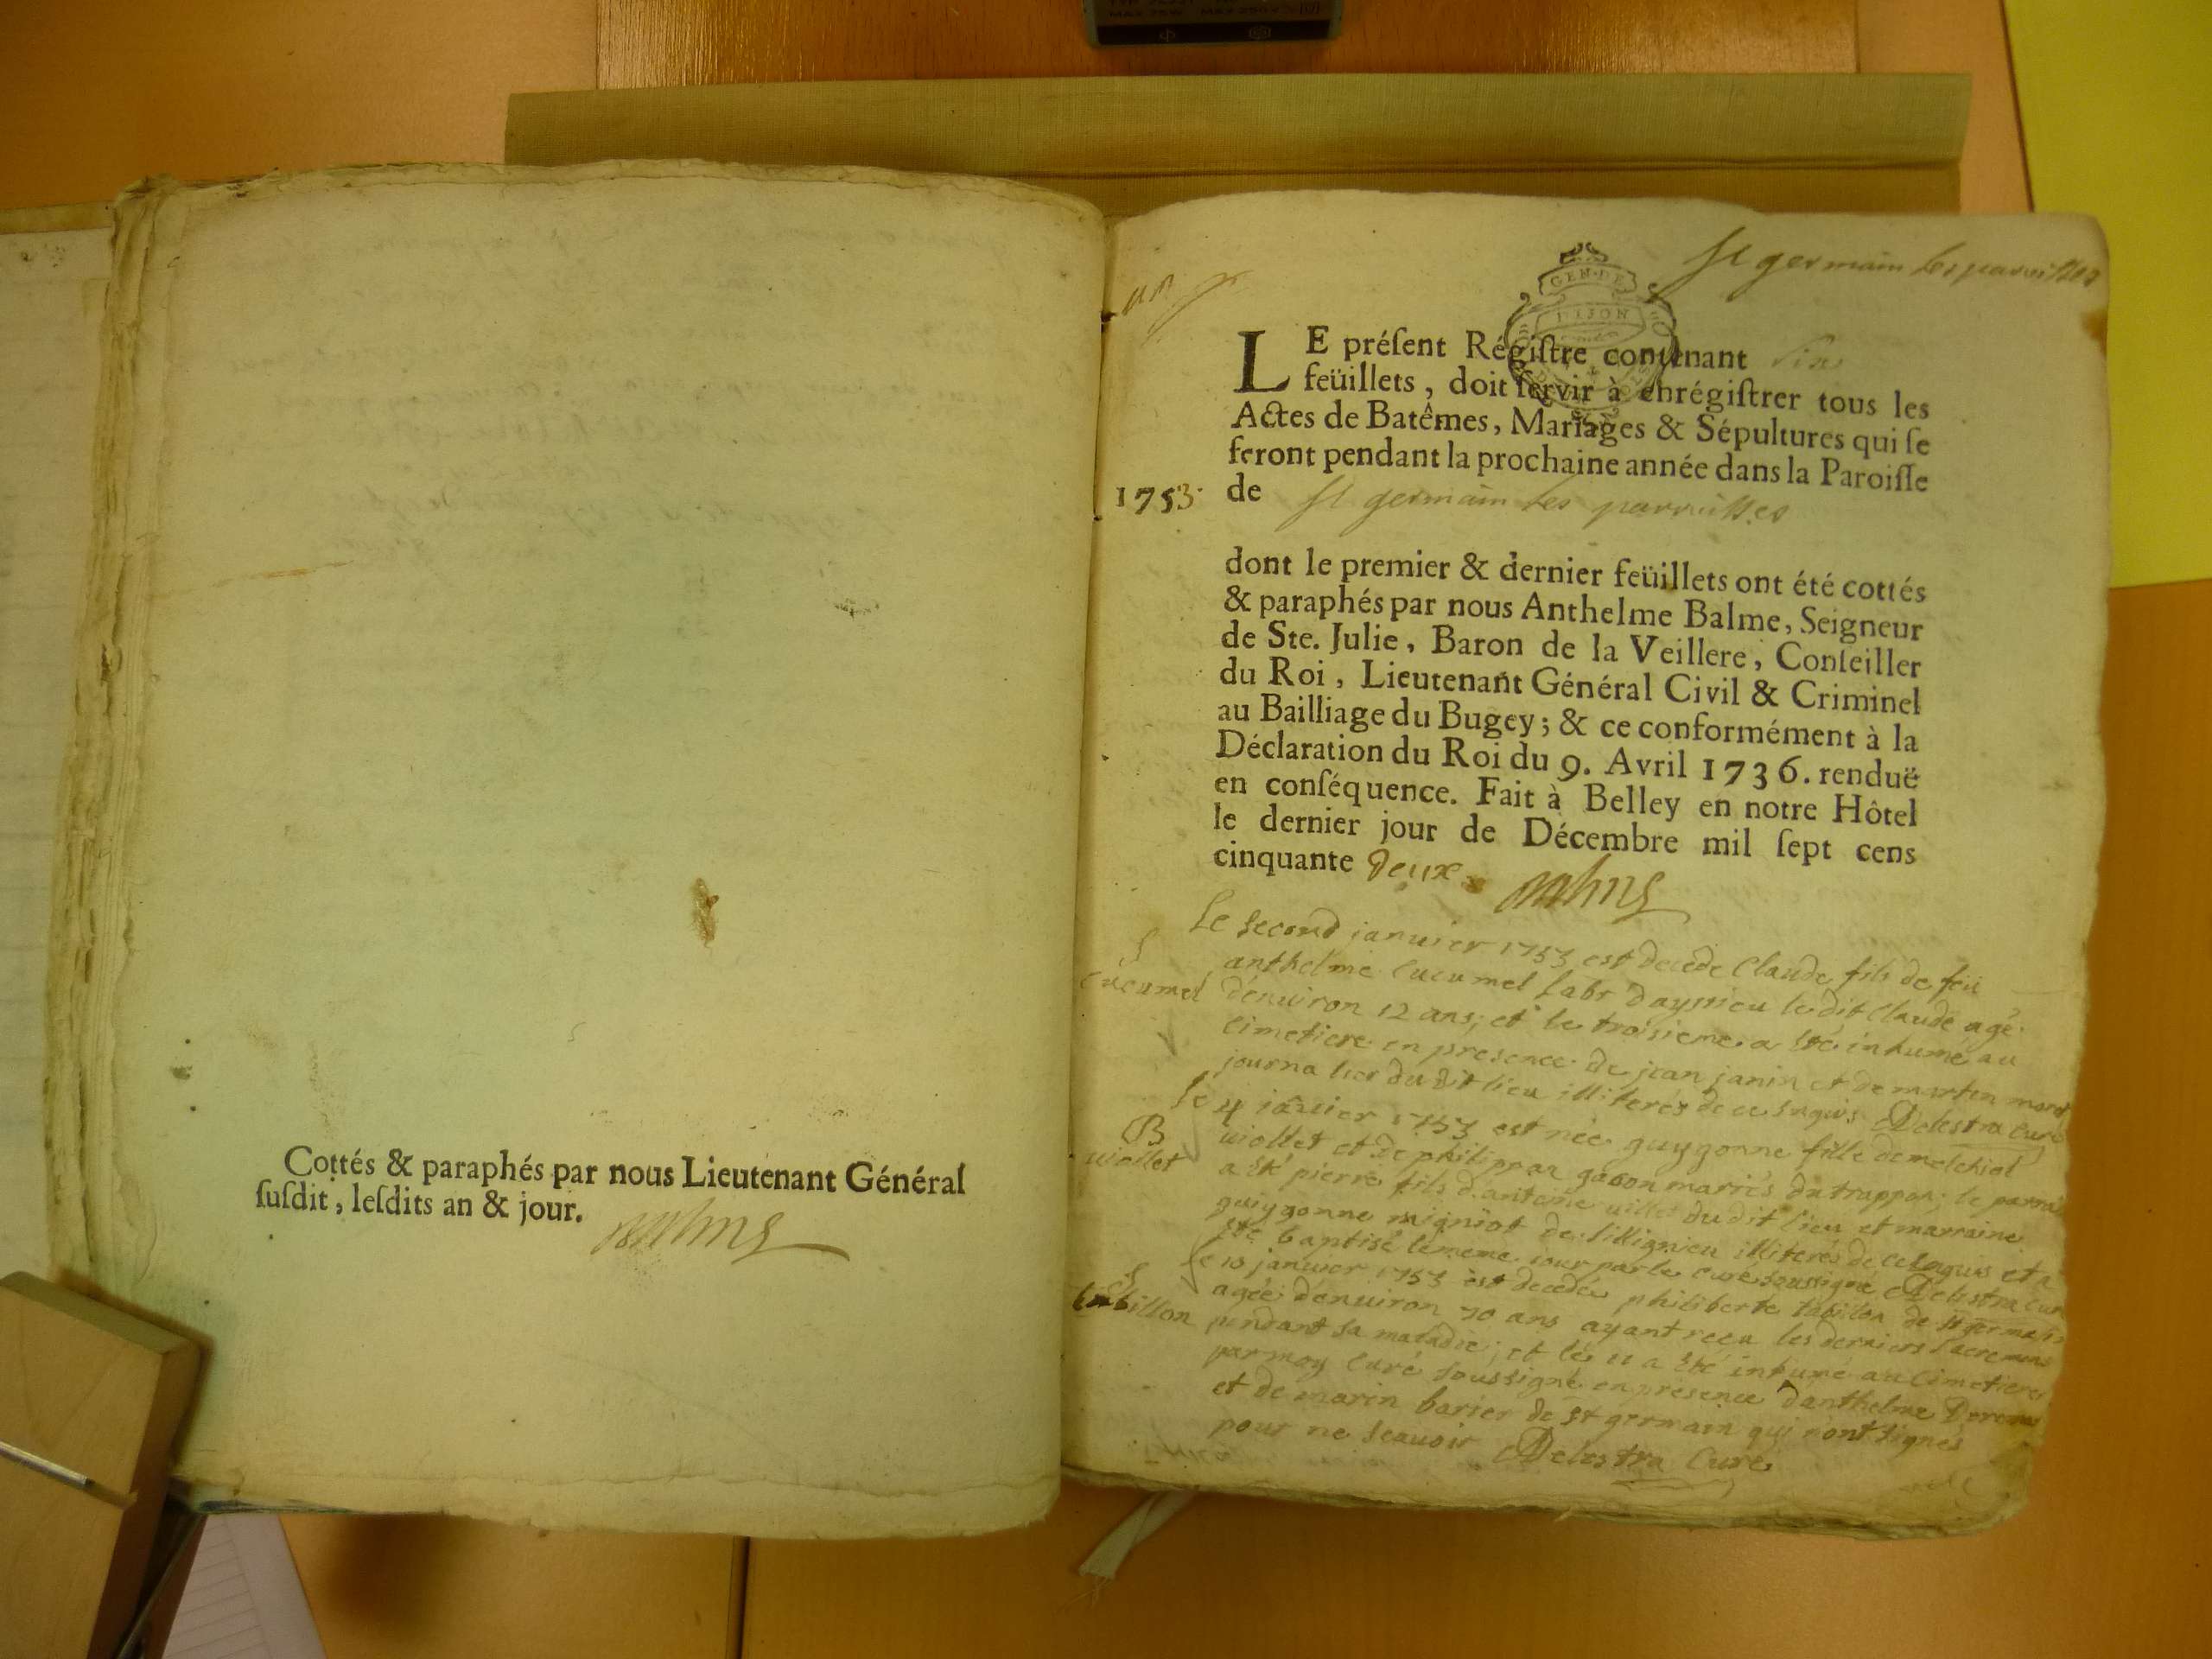 Cottés & paraphés par nous Lieutenant Général
ſuſdit, leſdits an & jour.
St germain les paroisses
GEN·DE
DIJON
LE préſent Régiſtre contenant Six
feüillets, doit ſervir à enrégiſtrer tous les
Actes de Batêmes, Mariages & Sépultures qui ſe
feront pendant la prochaine année dans la Paroiſſe
1753 de St germain les parroisses
dont le premier & dernier feüillets ont été cottés
& paraphés par nous Anthelme Balme, Seigneur
de Ste. Julie, Baron de la Veillere, Conſeiller
du Roi, Lieutenant Général Civil & Criminel
au Bailliage du Bugey; & ce conformément à la
Déclaration du Roi du 9. Avril 1736. renduë
en conſéquence. Fait à Belley en notre Hôtel
le dernier jour de Décembre mil ſept cens
cinquante deux
Le second januier 1753 est decede Claude fils de feü
S
Cucumel
anthelme Cucumel labr dayssieu ledit Claude agé
denuiron 12 ans; et le troisieme a eté inhumé au
cimetiere en presence de jean janin et de martin
journalier du dit lieu illiterés de ce enquis Delestra Curé
B
uiollet
le 4 januier 1753 est née guygonne fille de melchiol
uiollet et de philippaz gabon mariés du trappon; le parrain
a eté pierre fils d'antoine du dit lieu et marraine
guigonne migniot de sillignieu illiterés de ce enquis et a
eté baptisé le meme jour par le curé soussigné Delestra Curé
S
tabillon
le 10 januier 1753 est decedée philiberte tabillon de st germain
agée denuiron 70 ans ayant reçu les derniers sacremens
pendant sa maladie; et le 11 a eté inhumé au Cimetiere
par moy Curé soussigné en presence danthelme
et de marin barier de st germain qui n'ont signés
pour ne scauoir Delestra Curé